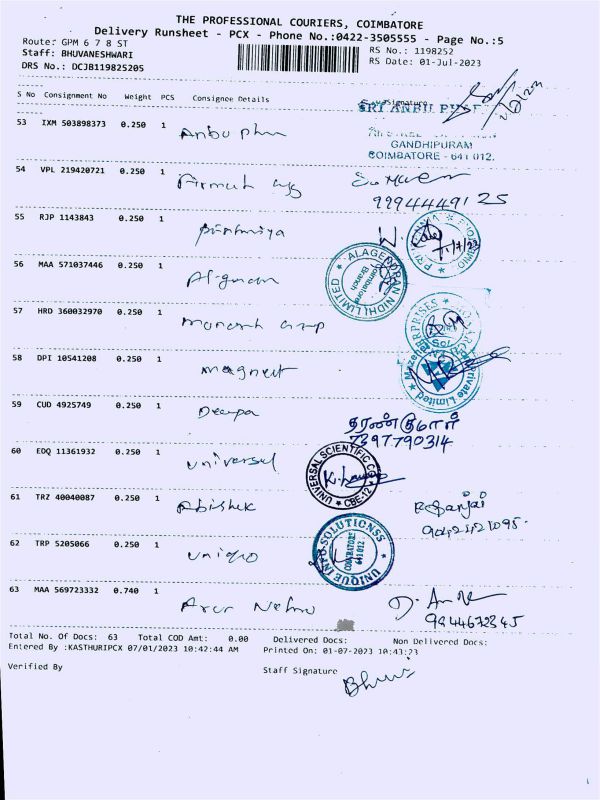 THE PROFESSIONAL COURIERS, COIMBATORE
Delivery Runsheet - PCX - Phone No.:0422-3505555 - Page No.:5
Route: GPM 6 7 8 ST
RS No.: 1198252
Staff: BHUVANESHWARI
RS Date: 01-Jul-2023
DRS No.: DCJB119825205
S No Consignment No Weight PCS Consignee Details Signature
SRI ANBU
53 IXM 503898373 0.250 1
GANDHIPURAM
COIMBATORE - 641 012.
54 VPL 219420721 0.250 1
9994444491 25
55 RJP 1143843 0.250 1
56 MAA 571037446 0.250 1 Aligman
ALAGENDRAN NIDHI LIMITED
Coimbatore Branch
57 HRD 360032970 0.250 1
58 DPI 10541208 0.250 1 magnet
Private Limited
59 CUD 4925749 0.250 1 Deepa
தரண்குமார்
7397790314
60 EDQ 11361932 0.250 1 universal
UNIVERSAL SCIENTIFIC CO
CBE-12
61 TRZ 40040087 0.250 1 Abishek
62 TRP 5205066 0.250 1 unique
UNIQUE INFO SOLUTIONSS
COIMBATORE
641 012
63 MAA 569723332 0.740 1 Arun Nehru
9944672345
Total No. Of Docs: 63 Total COD Amt: 0.00 Delivered Docs: Non Delivered Docs:
Entered By :KASTHURIPCX 07/01/2023 10:42:44 AM Printed On: 01-07-2023 10:43:23
Verified By Staff Signature
Bhuvi